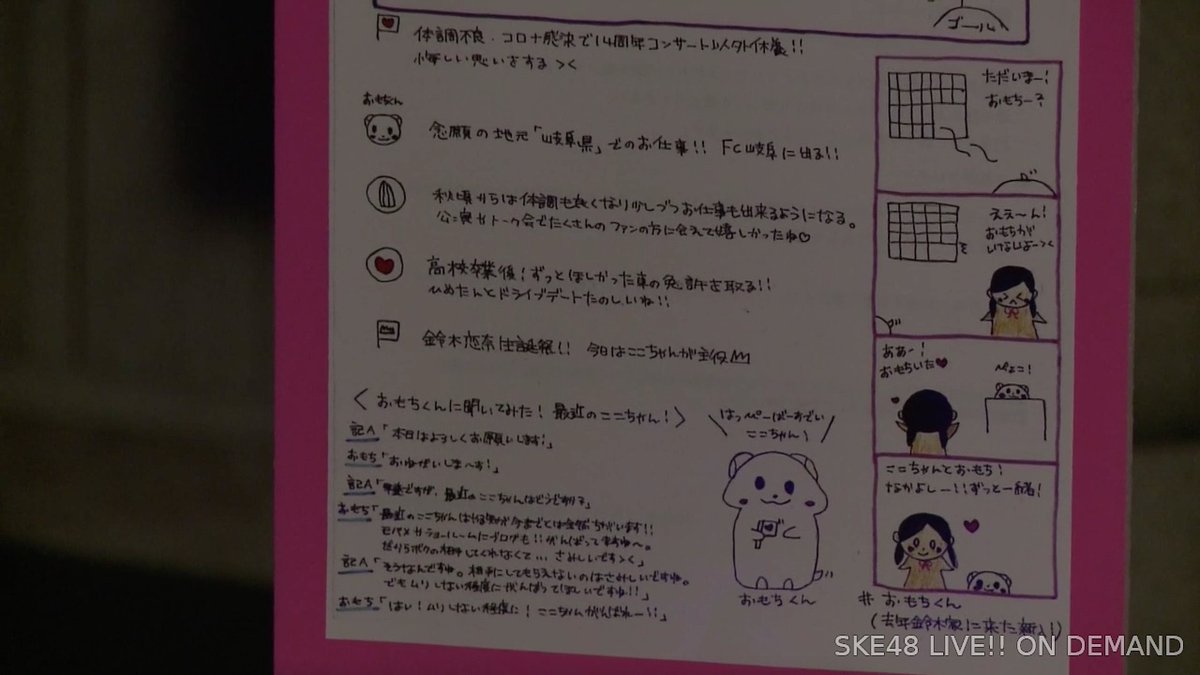 ゴール
体調不良・コロナ感染で14周年コンサート以外休養!!
悔しい思いをする ><
おもちくん
念願の地元「岐阜県」でのお仕事!! FC岐阜に出る!!
秋頃からは体調も良くなり少しづつお仕事も出来るようになる。
公演やトーク会でたくさんのファンの方に会えて嬉しかったね♡
高校卒業後!ずっとほしかった車の免許を取る!!
ひめたんとドライブデートたのしいね!!
鈴木恋奈生誕祭!! 今日はここちゃんが主役
<おもちくんに聞いてみた! 最近のここちゃん!>
記人「本日はよろしくお願いします!」
おもち「おねがいしま〜す!」
記人「早速ですが、最近のここちゃんはどうですか?」
おもち「最近のここちゃんは
今までとは全然ちがいます!!
モバメやショールームにブログも!! がんばってますね〜。
だからボクの相手してくれなくて... さみしいです><」
記人「そうなんですね。相手にしてもらえないのはさみしいですね。
でもムリしない程度にがんばってほしいですね!!」
おもち「はい!ムリしない程度に! ここちゃんがんばれー!!」
はっぴーばーすでい
ここちゃん!
おもちくん
ただいまー!
おもちー?
ええ〜ん!
おもちが
いないよー><
ああー!
おもちいた♥
ぺょこ!
ここちゃんとおもち!
なかよしー!!ずっと一緒!
# おもちくん
(去年鈴木家に来た新入り)
SKE48 LIVE!! ON DEMAND